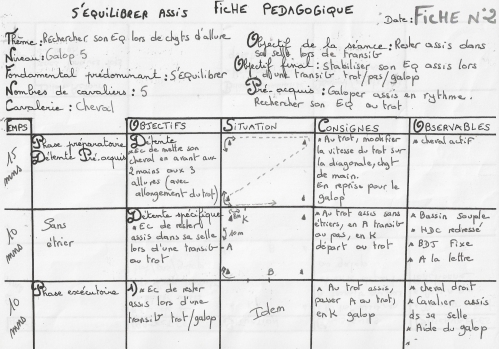 S'ÉQUILIBRER ASSIS FICHE PEDAGOGIQUE
Date: FICHE N°2
Thème: Rechercher son EQ lors de chgts d'allure
Niveau: Galop 5
Fondamental prédominant: S'équilibrer
Nombres de cavaliers: 5
Cavalerie: Cheval
Objectif de la séance: Rester assis dans sa selle lors de transit°
Objectif final: Stabiliser son EQ assis lors d'une transit° trot/pas/galop
Pré-acquis: Galoper assis en rythme.
Rechercher son EQ au trot.
TEMPS OBJECTIFS SITUATION CONSIGNES OBSERVABLES
15 mns
Phase préparatoire
Détente Pré-acquis
Détente
* EC de mettre son
cheval en avant aux
2 mains aux 3
allures (avec
allongement du trot)
* Au trot, modifier
la vitesse du trot sur
la diagonale, chgt
de main.
En reprise pour le
galop
* cheval actif
10 mns
Sans
étrier
Détente spécifique
* EC de rester
assis dans sa selle
lors d'une transit°
au trot
K
10m
A
B
* Au trot assis sans
étriers, en A transit°
au pas, en K
départ au trot
* Bassin souple
* HDC redressé
* BDJ Fixe
* A la lettre
10 mns
Phase exécutoire
1) * EC de rester
assis lors d'une
transit° trot/galop
Idem
* Au trot assis,
passer A au trot,
en K galop
* cheval droit
* Cavalier assis
ds sa selle
* Aide du galop